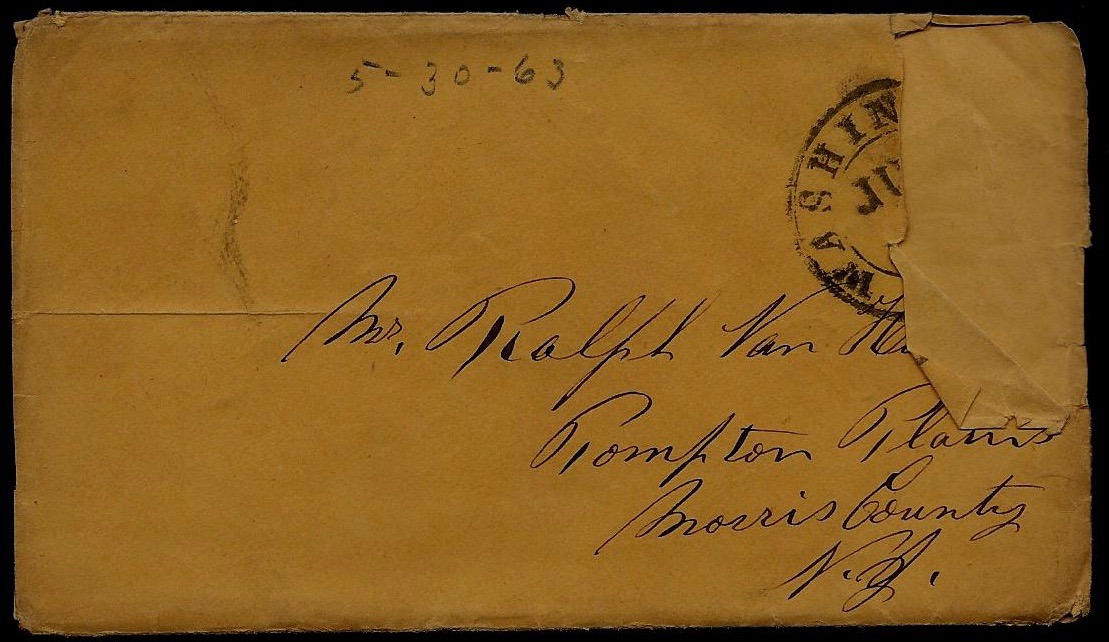 5-30-63
WASHIN
JU
Mr. Ralph Van
Pompton Plains
Morris County
N.J.